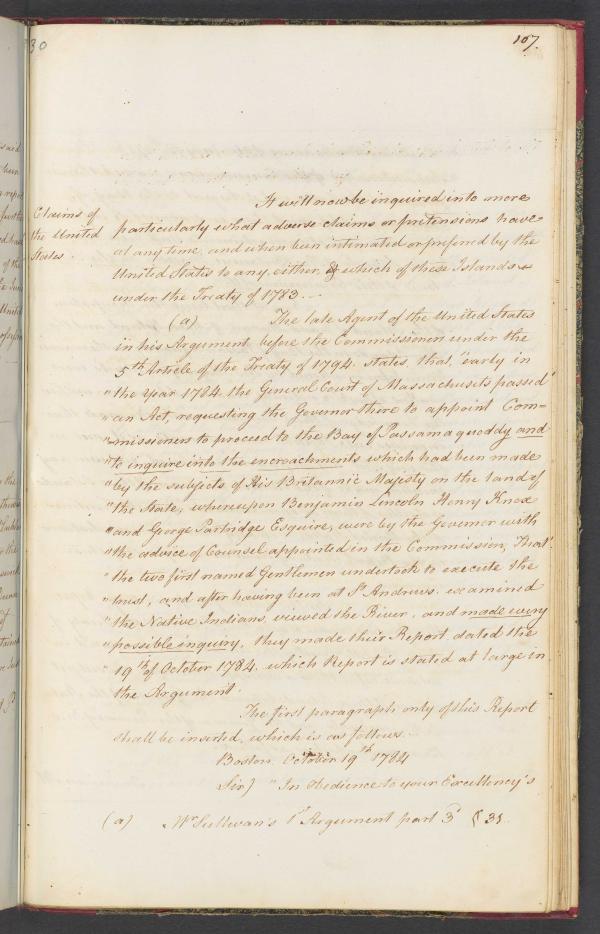 30
107.
Claims of
the United
States.
It will now be inquired into more
particularly what adverse claims or pretensions have
at any time, and when been intimated or preferred by the
United States to any, either, & which of these Islands
under the Treaty of 1783.
(a) The late Agent of the United States
in his Argument before the Commissioners under the
5th Article of the Treaty of 1794. states, that, "early in
"the Year 1784 the General Court of Massachusets passed
"an Act, requesting the Governor there to appoint Com=
"missioners to proceed to the Bay of Passamaquoddy and
"to inquire into the encroachments which had been made
"by the subjects of His Britannic Majesty on the land of
"the State, whereupon Benjamin Lincoln Henry Knox
"and George Partridge Esquire, were by the Governor with
"the advice of Counsel appointed in the Commission, That
"the two first named Gentlemen undertook to execute the
"trust, and after having been at St Andrews. examined
"the Native Indians, viewed the River, and made every
"possible inquiry, they made their Report dated the
"19th of October 1784. which Report is stated at large in
the Argument.
The first paragraph only of this Report
shall be inserted, which is as follows.
Boston October 19th 1784
Sir) "In Obedience to your Excellency's
(a) Mr Sullivan's 1st Argument part 3d 31.